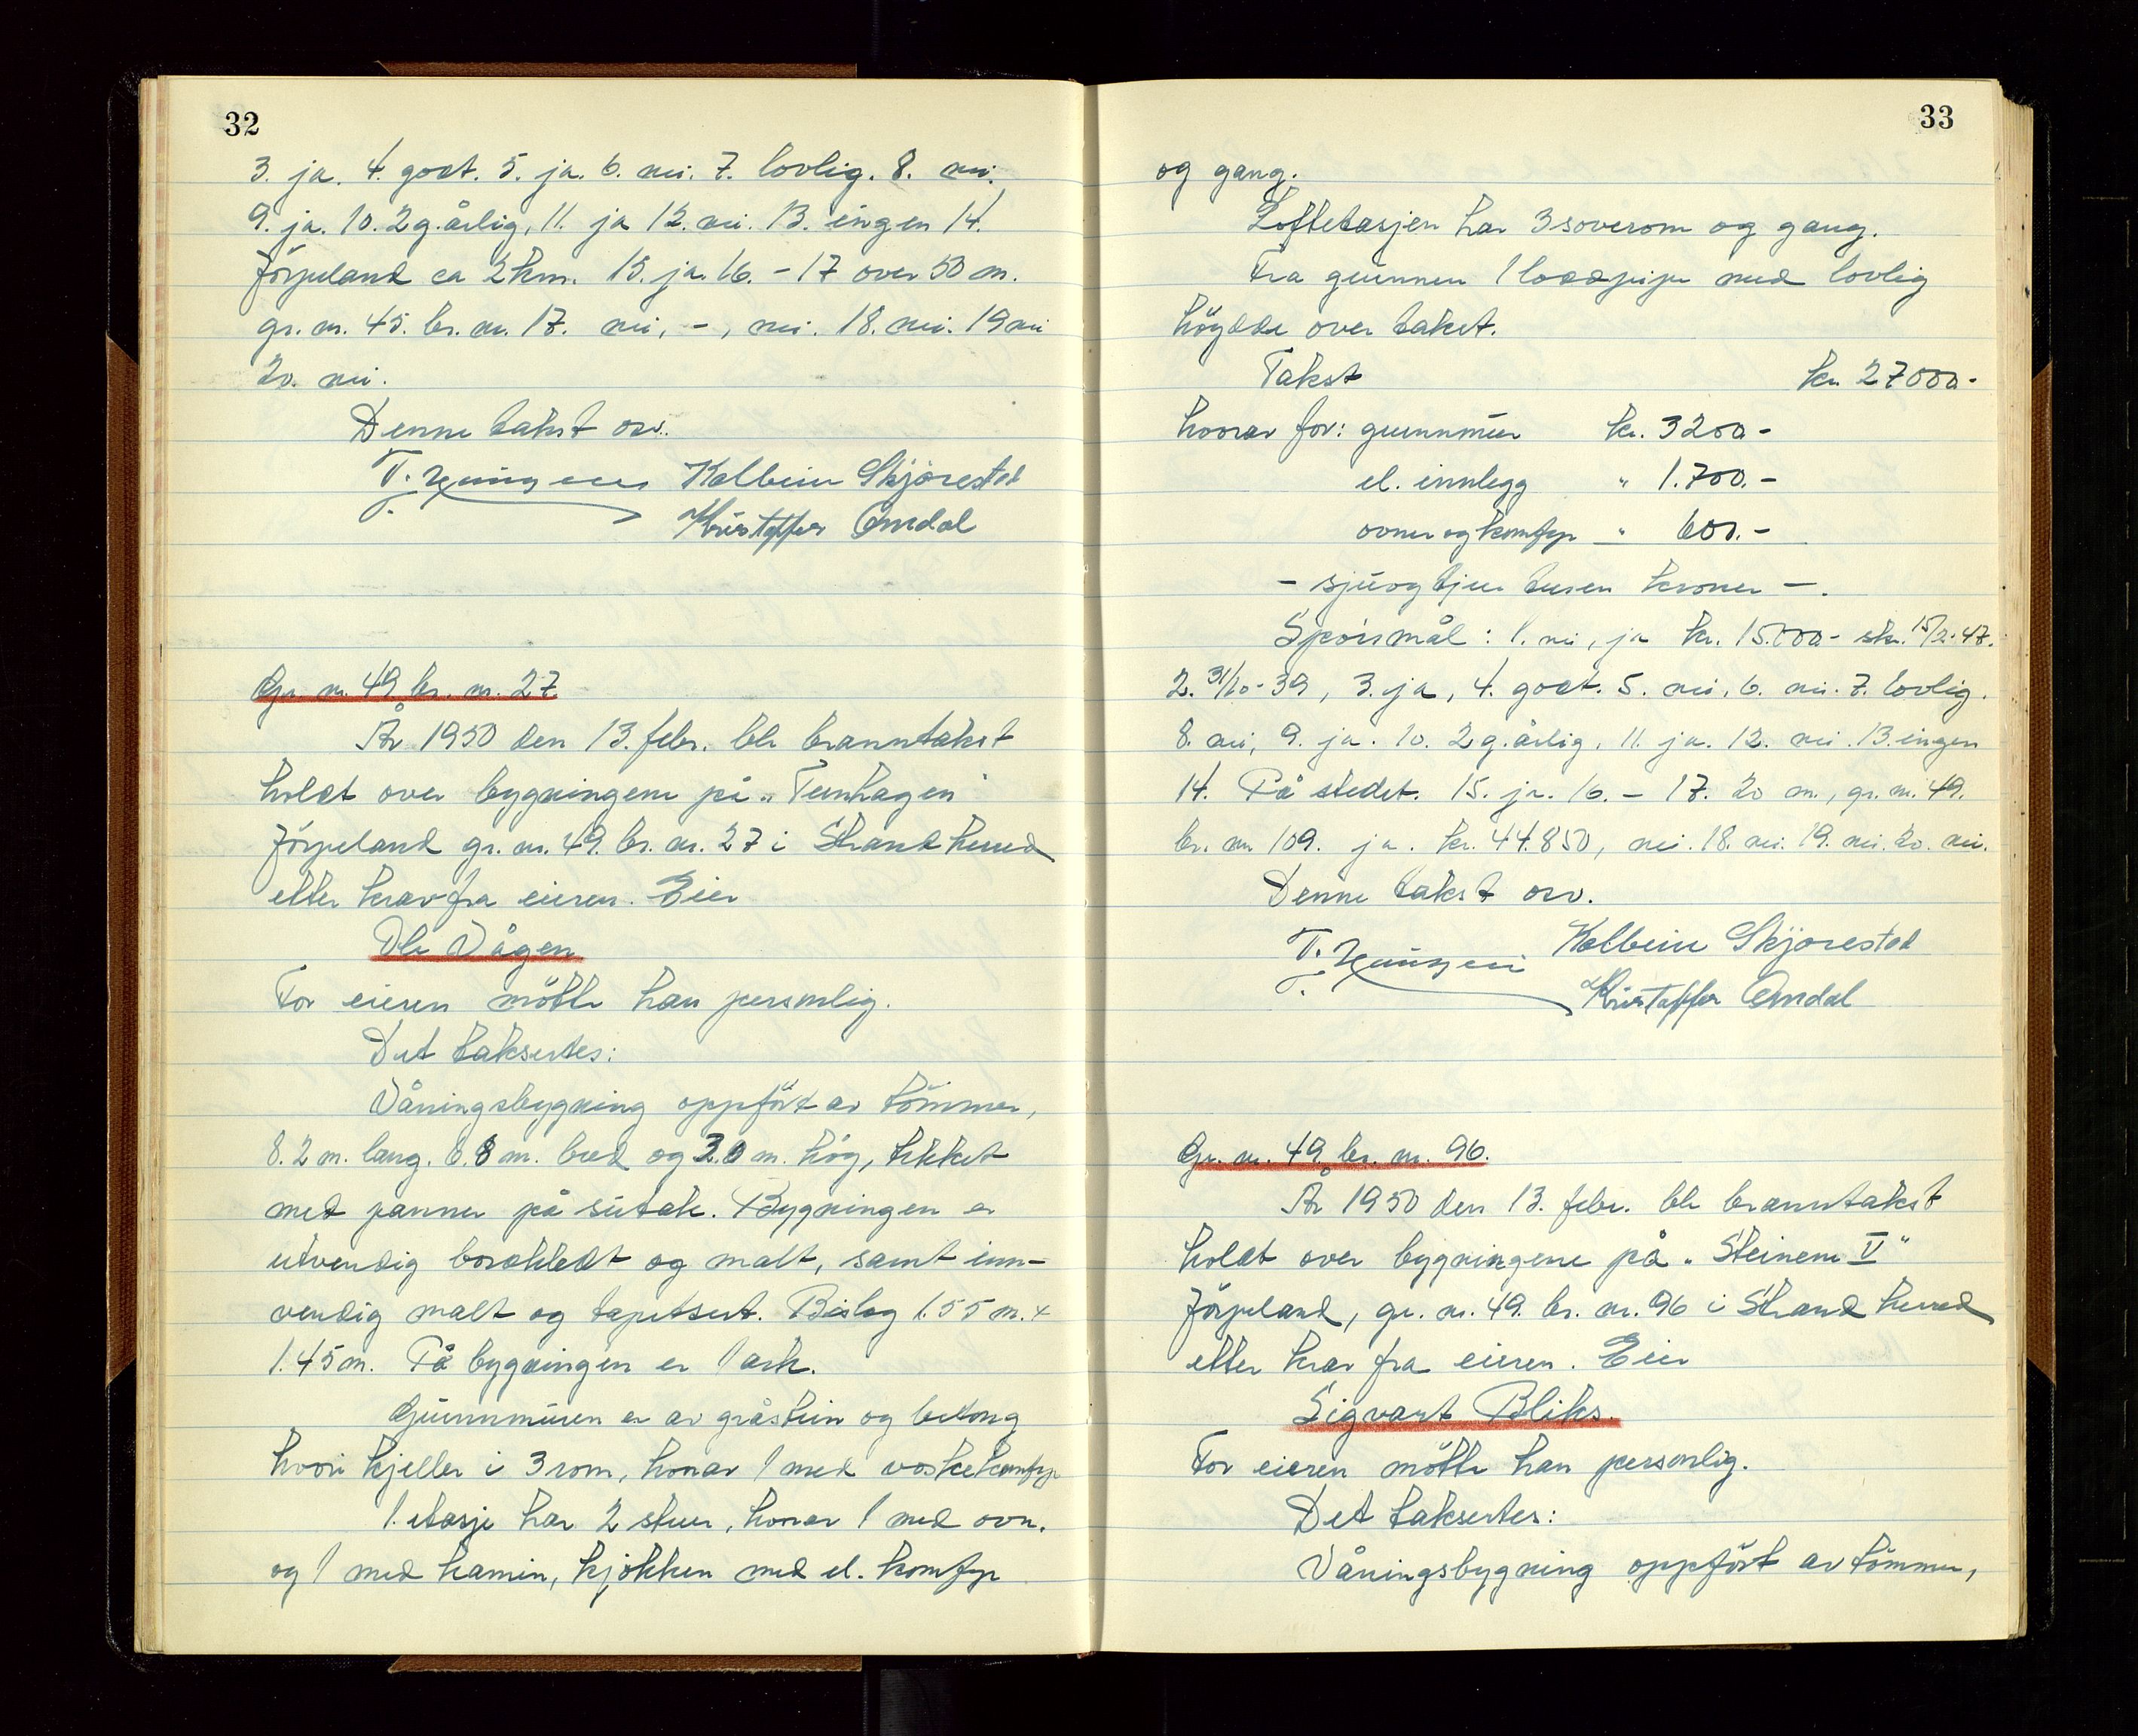 32
3. ja. 4. godt. 5. ja. 6. nei. 7. lovlig. 8. nei.
9. ja. 10. 2 g. årlig, 11. ja 12. nei. 13. ingen 14.
Jörpeland ca 2 km. 15. ja. 16. - 17 over 50 m.
gr. nr. 45. br. nr. 17. nei, -, nei. 18. nei. 19 nei
20. nei.
Denne takst osv.
Kolbein Skjørestad
Kristoffer Omdal
Gr. nr. 49 br. nr. 27.
År 1950 den 13. febr. ble branntakst
holdt over bygningene på „Tunhagen"
Jörpeland gr. nr. 49. br. nr. 27 i Strand herred
etter krav fra eieren. Eier
Ole Vågen
For eieren mötte han personlig.
Det takseртes:
Våningsbygning oppfört av tömmer,
8.2 m. lang. 6.8 m. bred og 3.0 m. hög, tekket
med panner på sutak. Bygningen er
utvendig bordkledt og malt, samt inn-
vendig malt og tapetsert. Bislag 1.55 m. x
1.45 m. På bygningen er 1 ark.
Grunnmuren er av gråstein og betong
hvori kjeller i 3 rom, hvorav 1 med vaskekomfyr
1. etasje har 2 stuer, hvorav 1 med ovn.
og 1 med kamin, kjökken med el. komfyr
33
og gang.
Loftetasjen har 3 soverom og gang.
Fra grunnen 1 loddpipe med lovlig
höydde over taket.
Takst kr. 27000.-
hvorav for: grunnmur kr. 3200.-
el. innlegg " 1.700.-
ovner og komfyr " 600.-
- sjuogtjue tusen kroner -.
Spörsmål: 1. nei, ja kr. 15.000.- skr. 15/2-47.
2. 31/10-39, 3. ja, 4. godt. 5. nei. 6. nei. 7. lovlig.
8. nei, 9. ja. 10. 2 g. årlig. 11. ja. 12. nei. 13. ingen
14. På stedet. 15. ja. 16. - 17. 20 m., gr. nr. 49.
br. nr. 109. ja. kr. 44.850, nei. 18. nei. 19. nei. 20. nei.
Denne takst osv.
Kolbein Skjørestad
Kristoffer Omdal
Gr. nr. 49. br. nr. 96.
År 1950 den 13. febr. ble branntakst
holdt over bygningene på „Steinen V"
Jörpeland, gr. nr. 49. br. nr. 96 i Strand herred
etter krav fra eieren. Eier
Sigvart Bliks.
For eieren mötte han personlig.
Det taksertes:
Våningsbygning oppfört av tömmer,